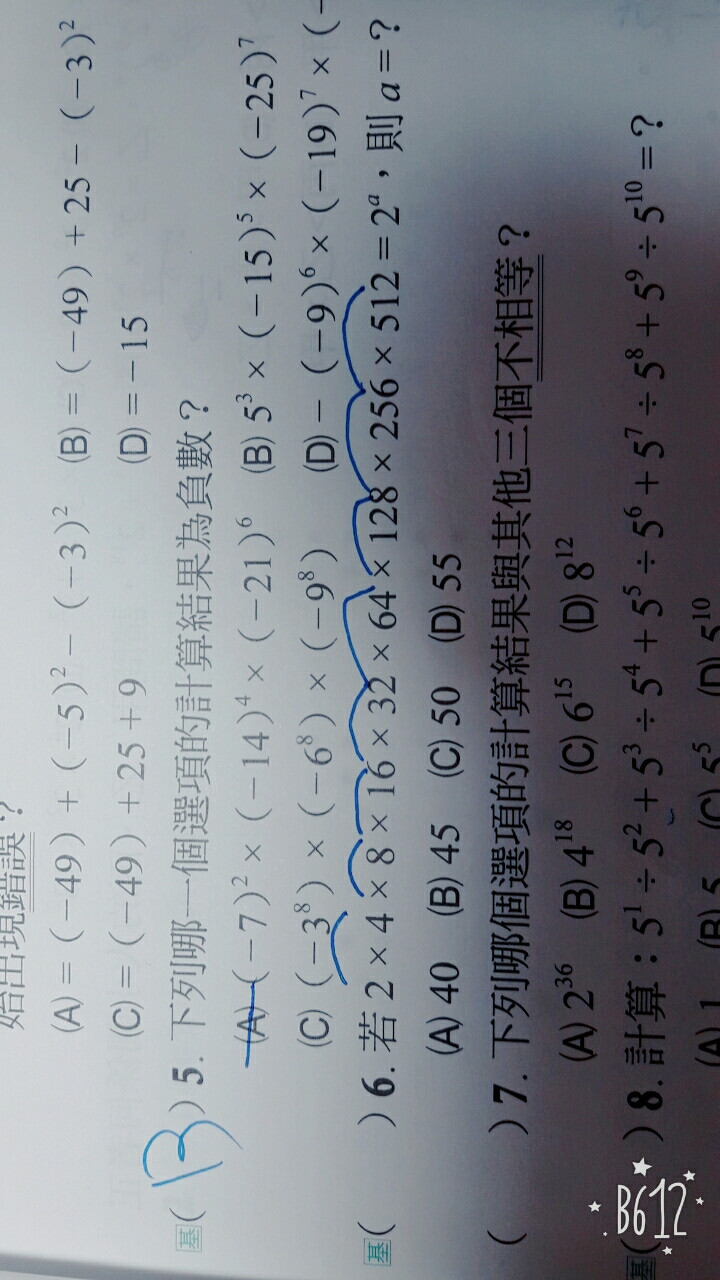 始出現錯誤？
(A)＝(－49)＋(－5)²－(－3)² (B)＝(－49)＋25－(－3)²
(C)＝(－49)＋25＋9 (D)＝－15
基( B )5. 下列哪一個選項的計算結果為負數？
(A) (－7)²×(－14)⁴×(－21)⁶ (B) 5³×(－15)⁵×(－25)⁷
(C) (－3⁸)×(－6⁸)×(－9⁸) (D)－(－9)⁶×(－19)⁷×(－
基( )6. 若2×4×8×16×32×64×128×256×512＝2ᵃ，則a＝？
(A) 40 (B) 45 (C) 50 (D) 55
( )7. 下列哪個選項的計算結果與其他三個不相等？
(A) 2³⁶ (B) 4¹⁸ (C) 6¹⁵ (D) 8¹²
基( )8. 計算：5¹÷5²＋5³÷5⁴＋5⁵÷5⁶＋5⁷÷5⁸＋5⁹÷5¹⁰＝？
(A) 1 (B) 5 (C) 5⁵ (D) 5¹⁰
B612